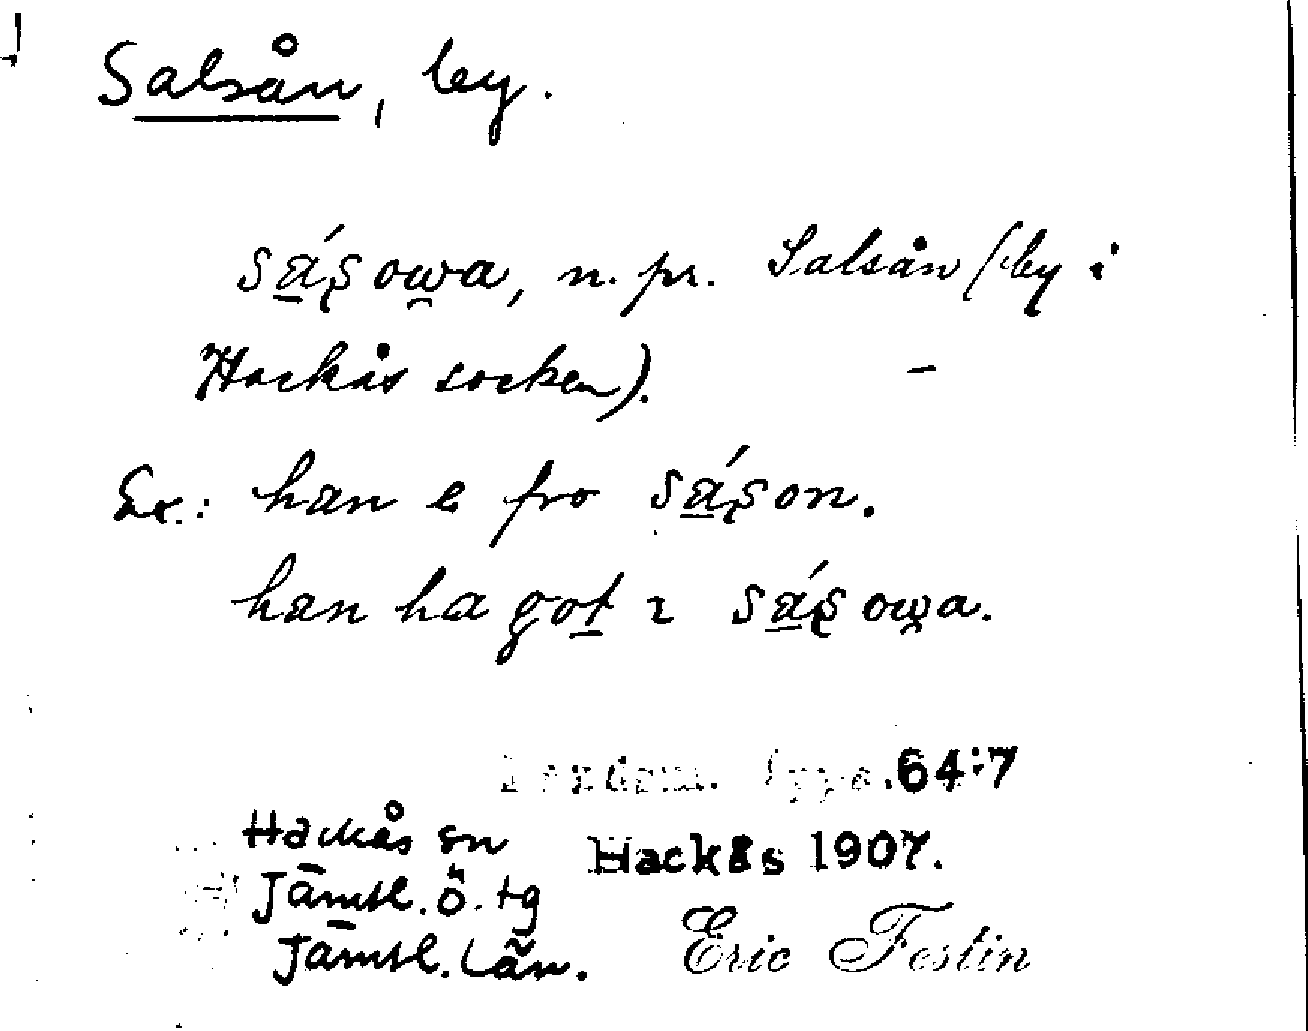 Salsån, by.
sa̱ʹʂoɯ̯a, n. pr. Salsån (by i
Hackås socken).
Ex.: han e fro sa̱ʹʂon.
han ha got̠ ɩ sa̱ʹʂoɯ̯a.
Landsm. Upps. 64:7
Hackås sn
Hackås 1907.
Jämtl. ö. tg
Jämtl. län.
Eric Festin